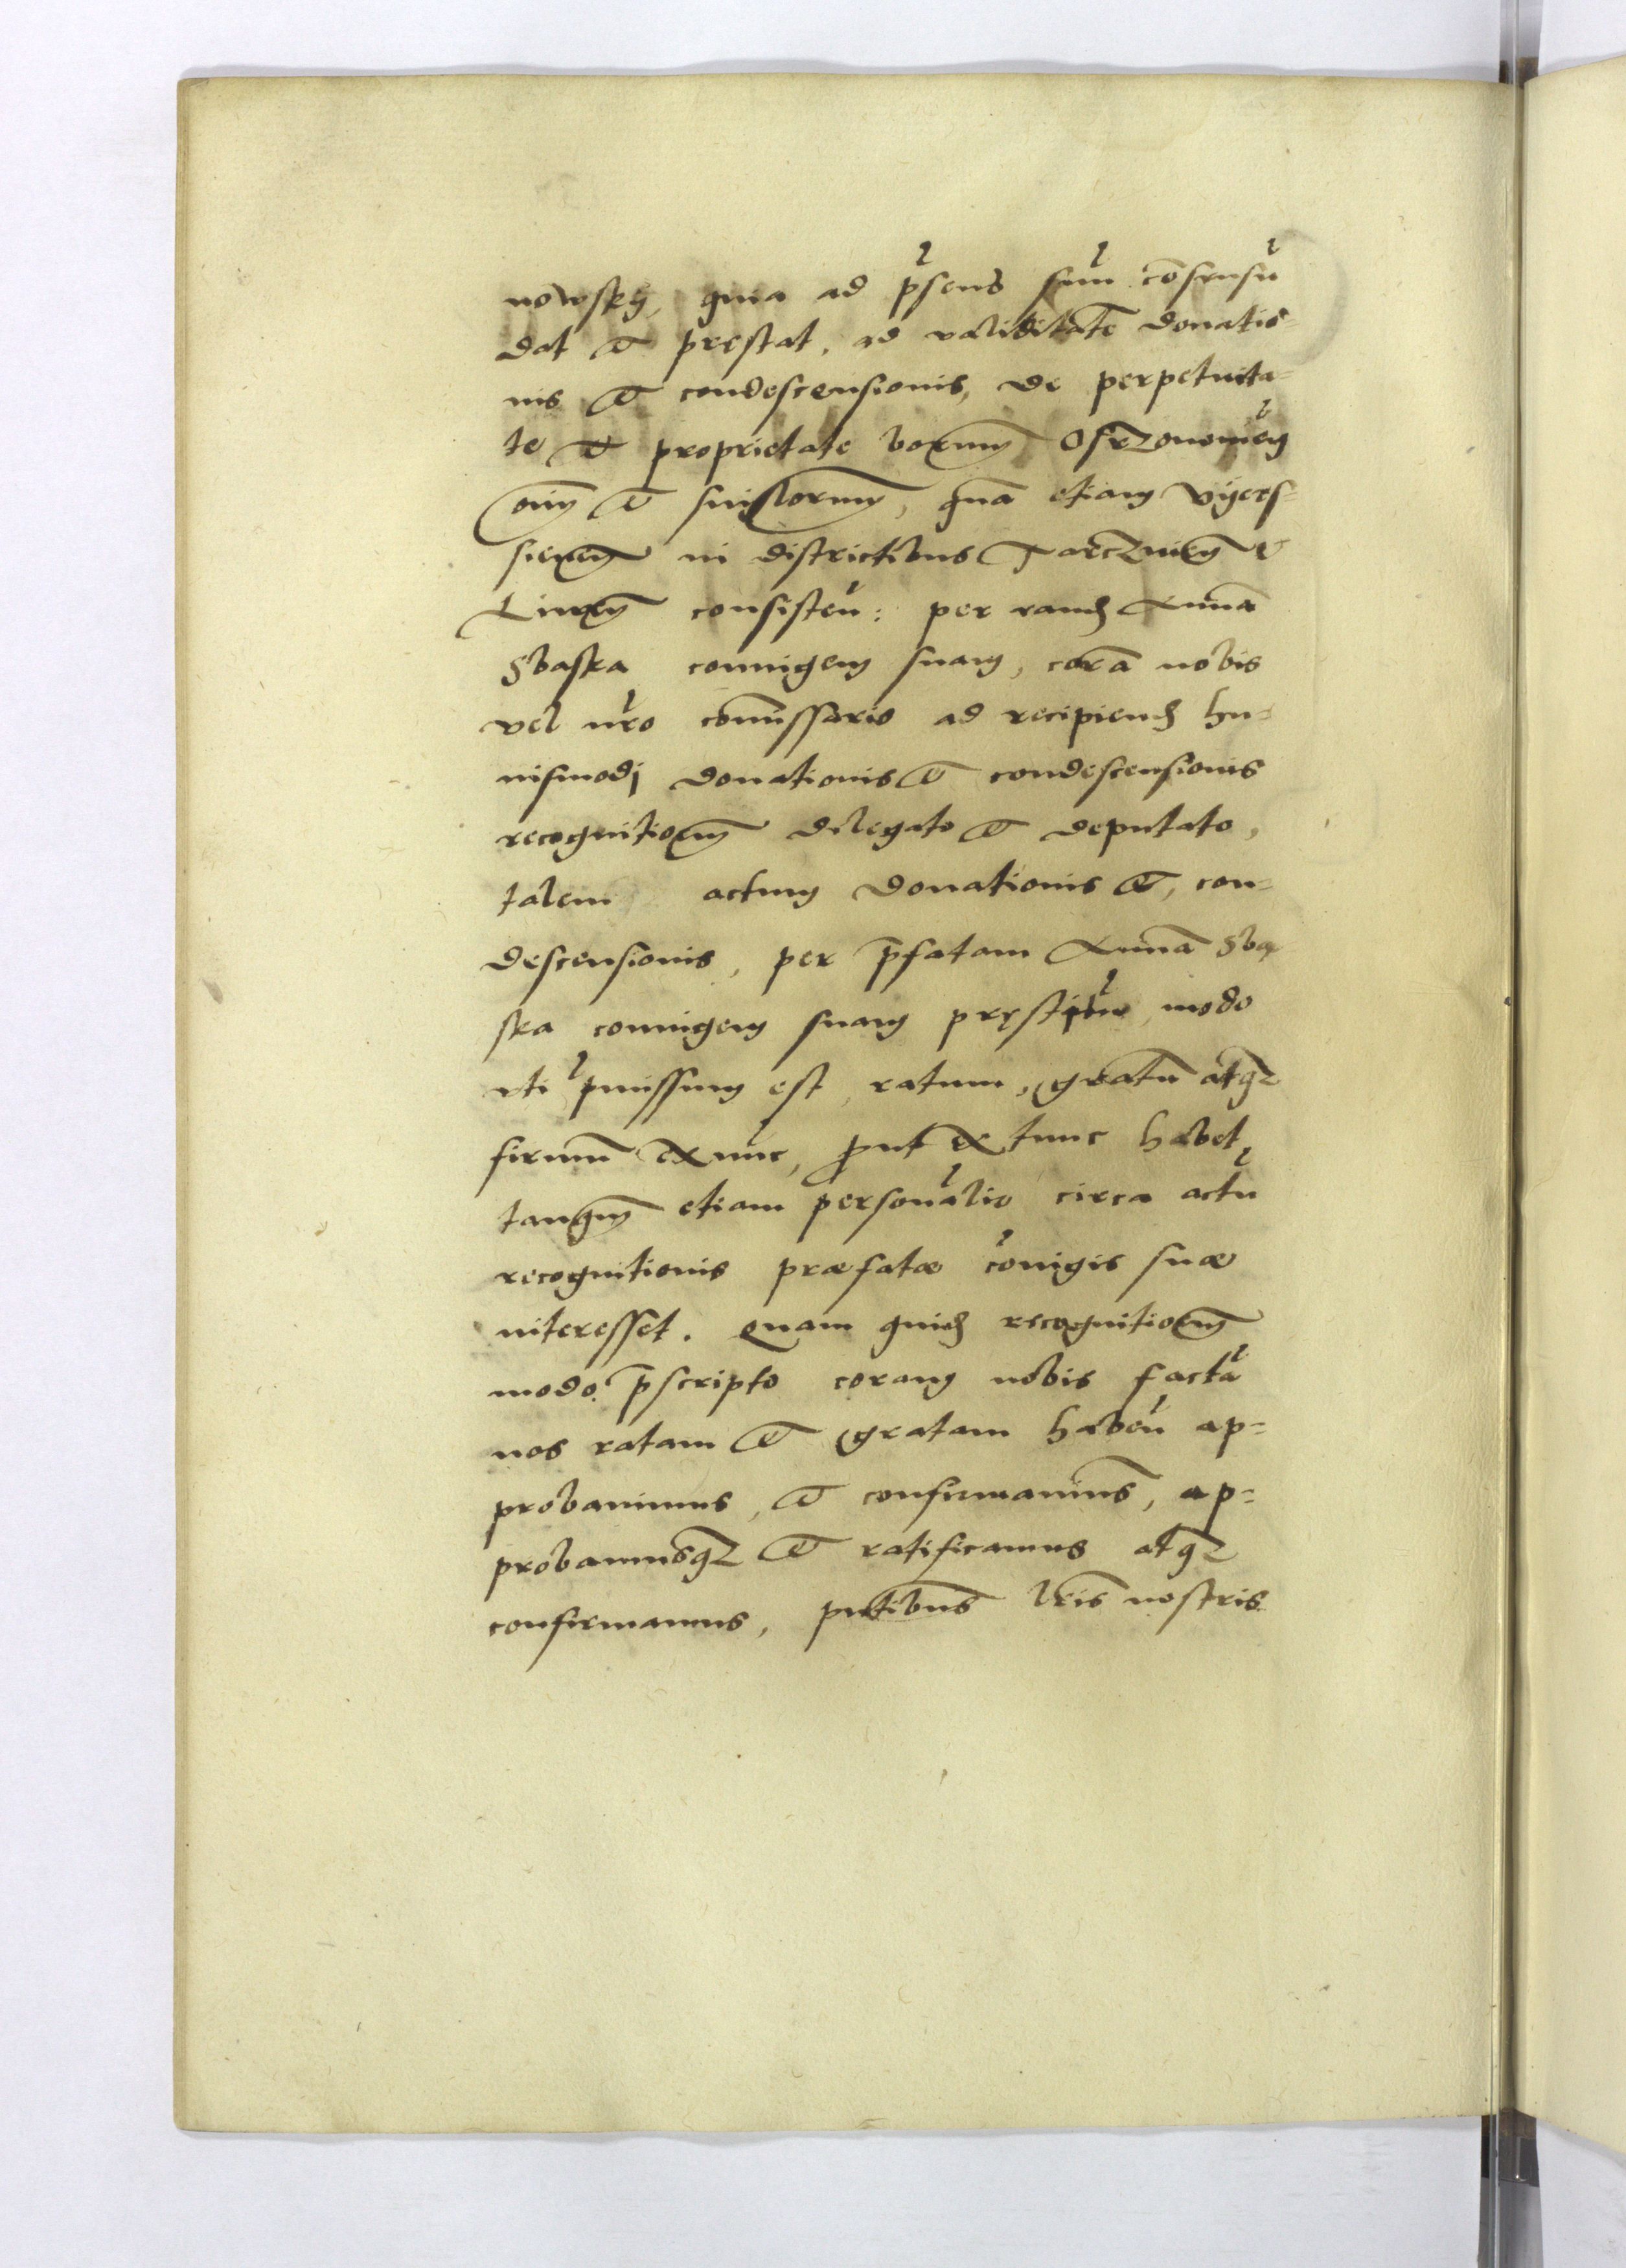 nowskÿ, quia ad p̃sens suũ cõsensũ
dat et pręstat, ad validitatẽ donatio=
nis et condescensionis, de perpetuita=
te et proprietate bonorum
et suissorum, quã etiam Vÿers=
in districtibus Tarczinen et
Liwen consisteñ: per eand Annã
Sbaska coniugem suam, corã nobis
vel nr̃o com̃issario ad recipiend hu=
iusmodj donationis et condescensionis
recognitionem delegato et deputato,
talem actum donationis et, con=
descensionis, per p̃fatam Annã Sba
ska coniugem suam pręstitũ modo
vti p̃missum est, ratum, gratũ atq3
firmũ ex nũc, ꝓut ex tunc habet,
tanq̃m etiam personal̃r circa actũ
recognitionis præfatæ cõiugis suæ
interesset. Quam quid recognitionem
modo p̃scripto coram nobis factã
nos ratam et gratam habeñ ap=
probauimus, et confirmauimus, ap=
probamusq3 et ratificamus atq3
confirmamus, pñtibus lr̃is nostris